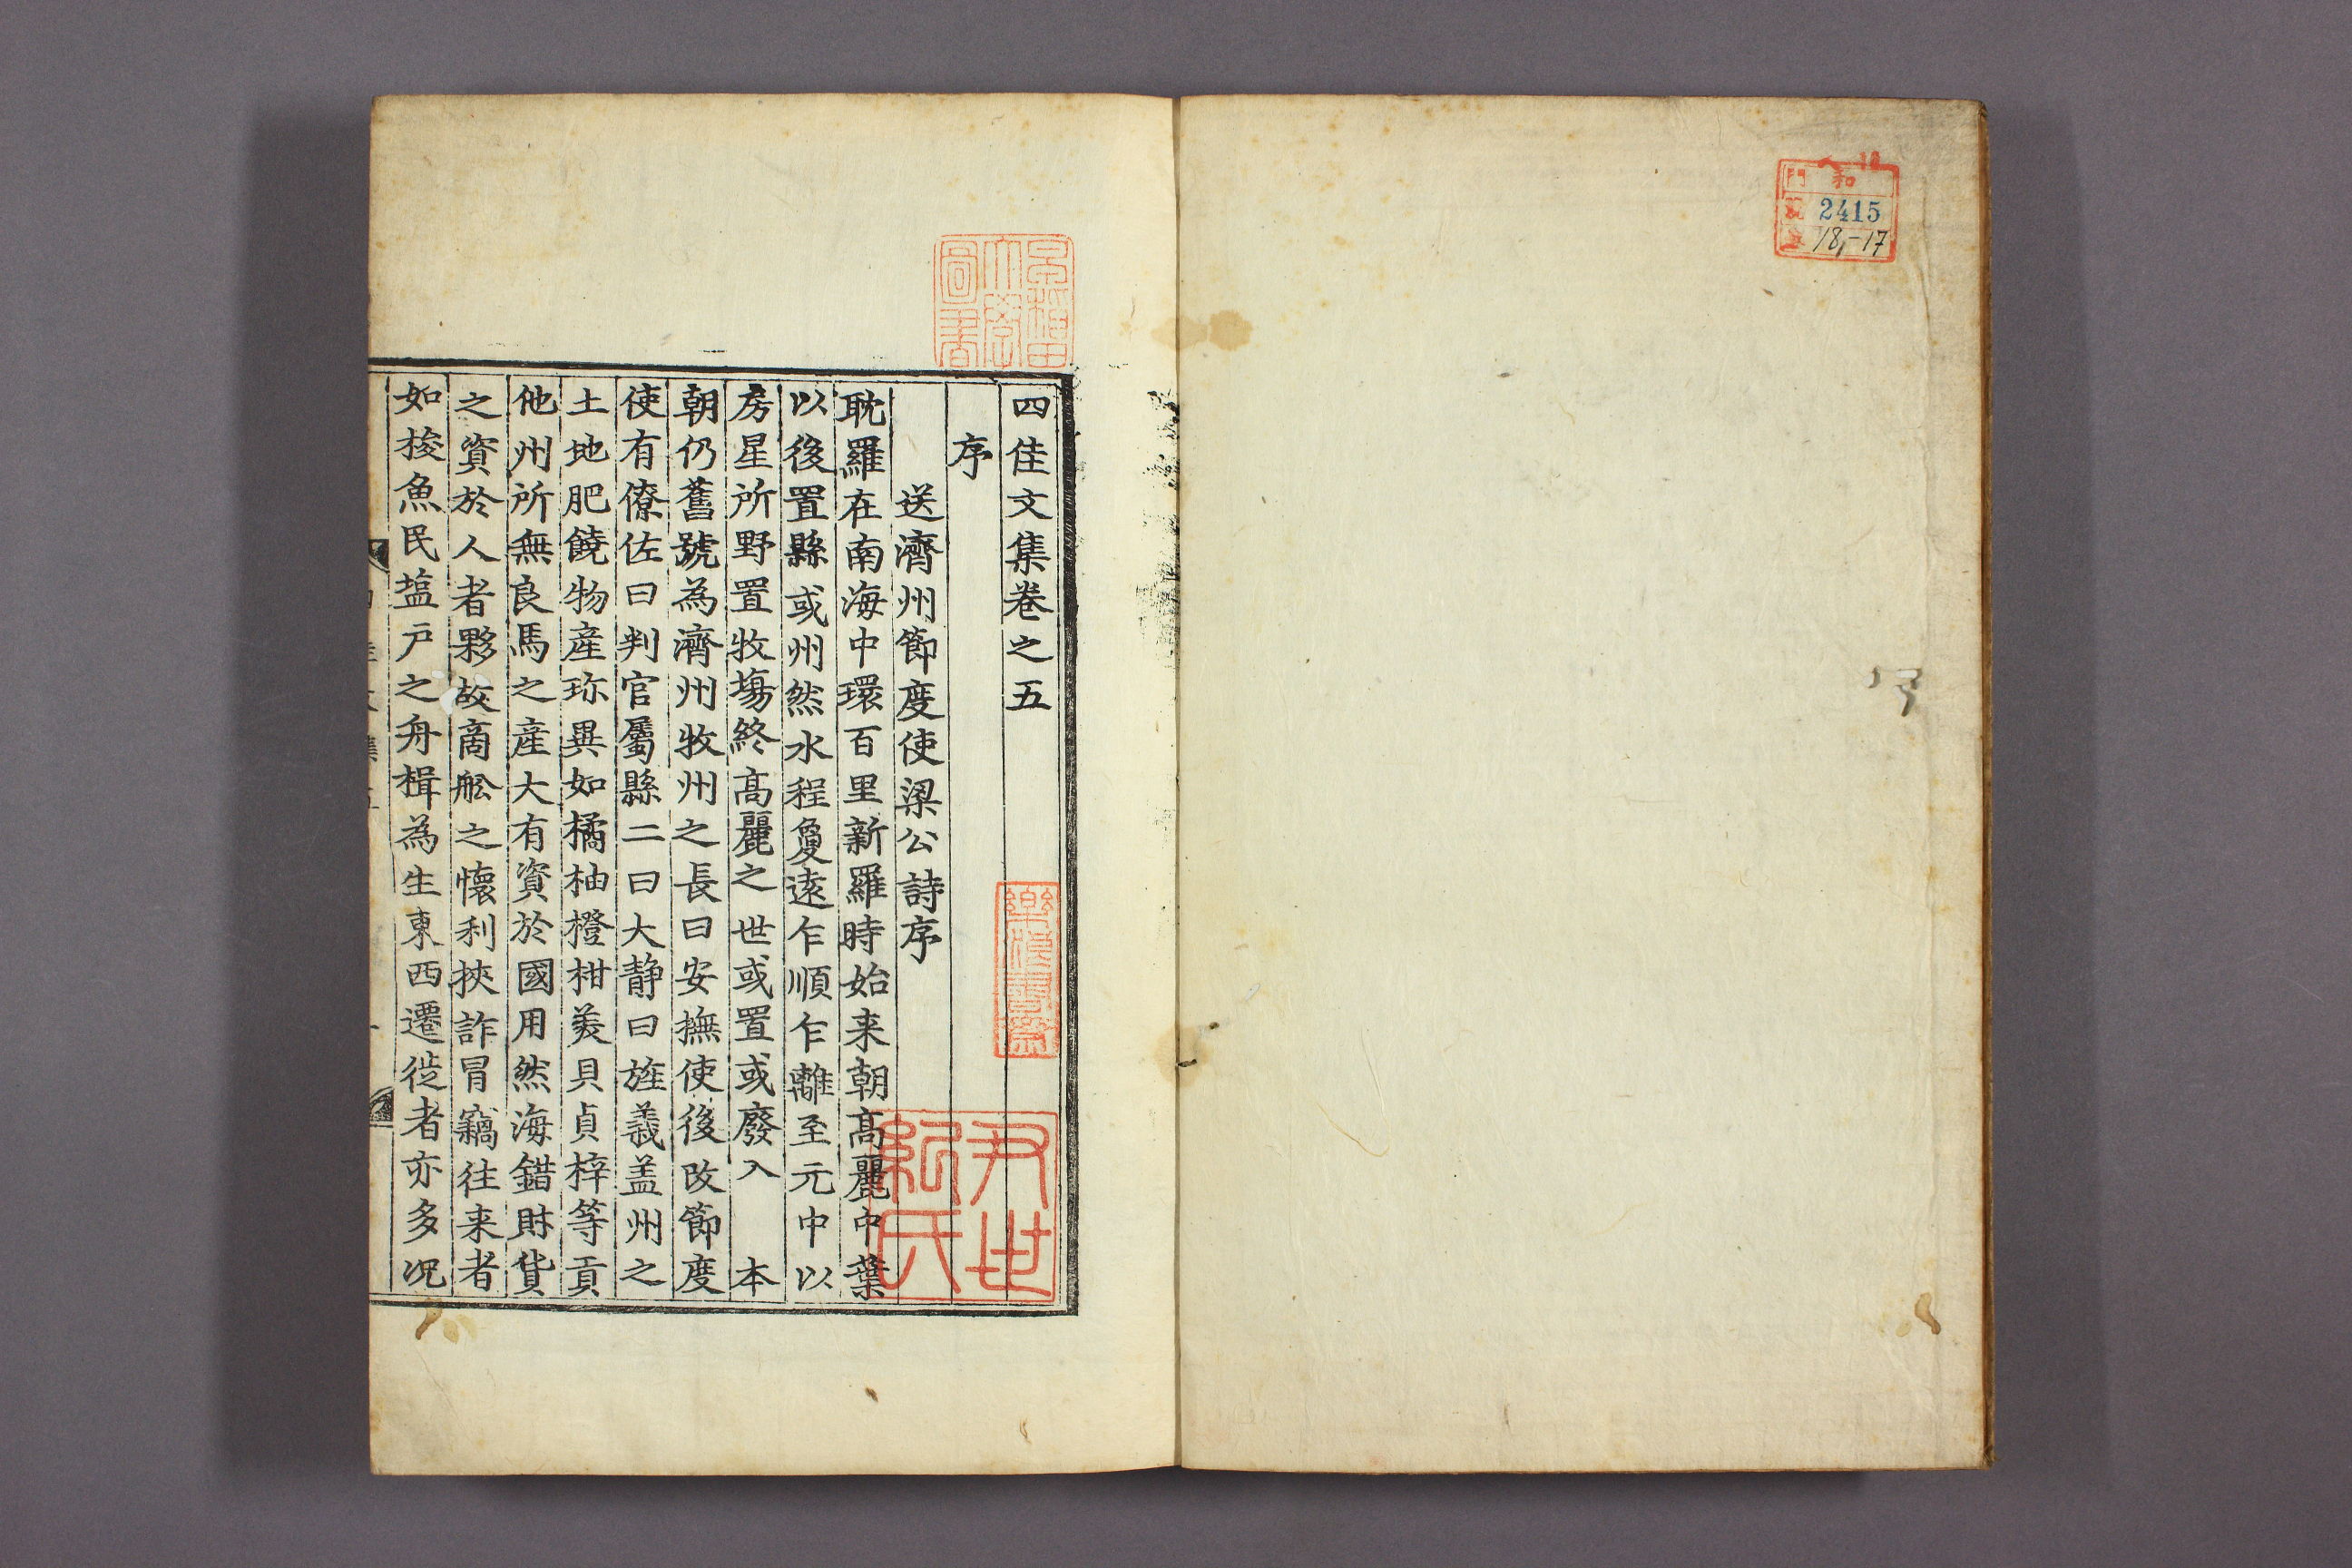 和
門
2415
18,-17
早稲田
大學
圖書
四佳文集卷之五
序
送濟州節度使梁公詩序
耽羅在南海中環百里新羅時始来朝高麗中葉
以後置縣或州然水程敻遠乍順乍離至元中以
房星所野置牧塲終高麗之世或置或廢入　本
朝仍舊號為濟州牧州之長曰安撫使後改節度
使有僚佐曰判官屬縣二曰大静曰㫌義盖州之
土地肥饒物産珎異如橘柚橙柑蠙貝貞梓等貢
他州所無良馬之産大有資於國用然海錯財貨
之資於人者夥故商舩之懷利挾詐冒竊往来者
如梭魚民塩户之舟楫為生東西遷徙者亦多况
尹世
紀氏